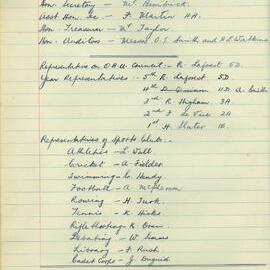 Hon. Secretary — Mr.
Asst Hon. Sec — F. Martin HA.
Hon. Treasurer — Mr Taylor
Hon. Auditors — Messrs O.S. Smith and H.S. Watkins
Representative on O.A.U. Council :- R. Laforest 5D.
Year Representatives :- 5th R Laforest 5D
4th D. 4D A. Smith
3rd R Higham. 3A
2nd F. de Vere 2A
1st H. Slater 1E.
Representatives of Sports Clubs :-
Athletics — L. Wall
Cricket — A. Fielder
Swimming — L. Hendy
Football — A.
Rowing — H. Turk.
Tennis — K. Hicks
Rifle Shooting — K.
Debating — W. Simms
Library — F. Rush
Cadet Corps — J. Duguid